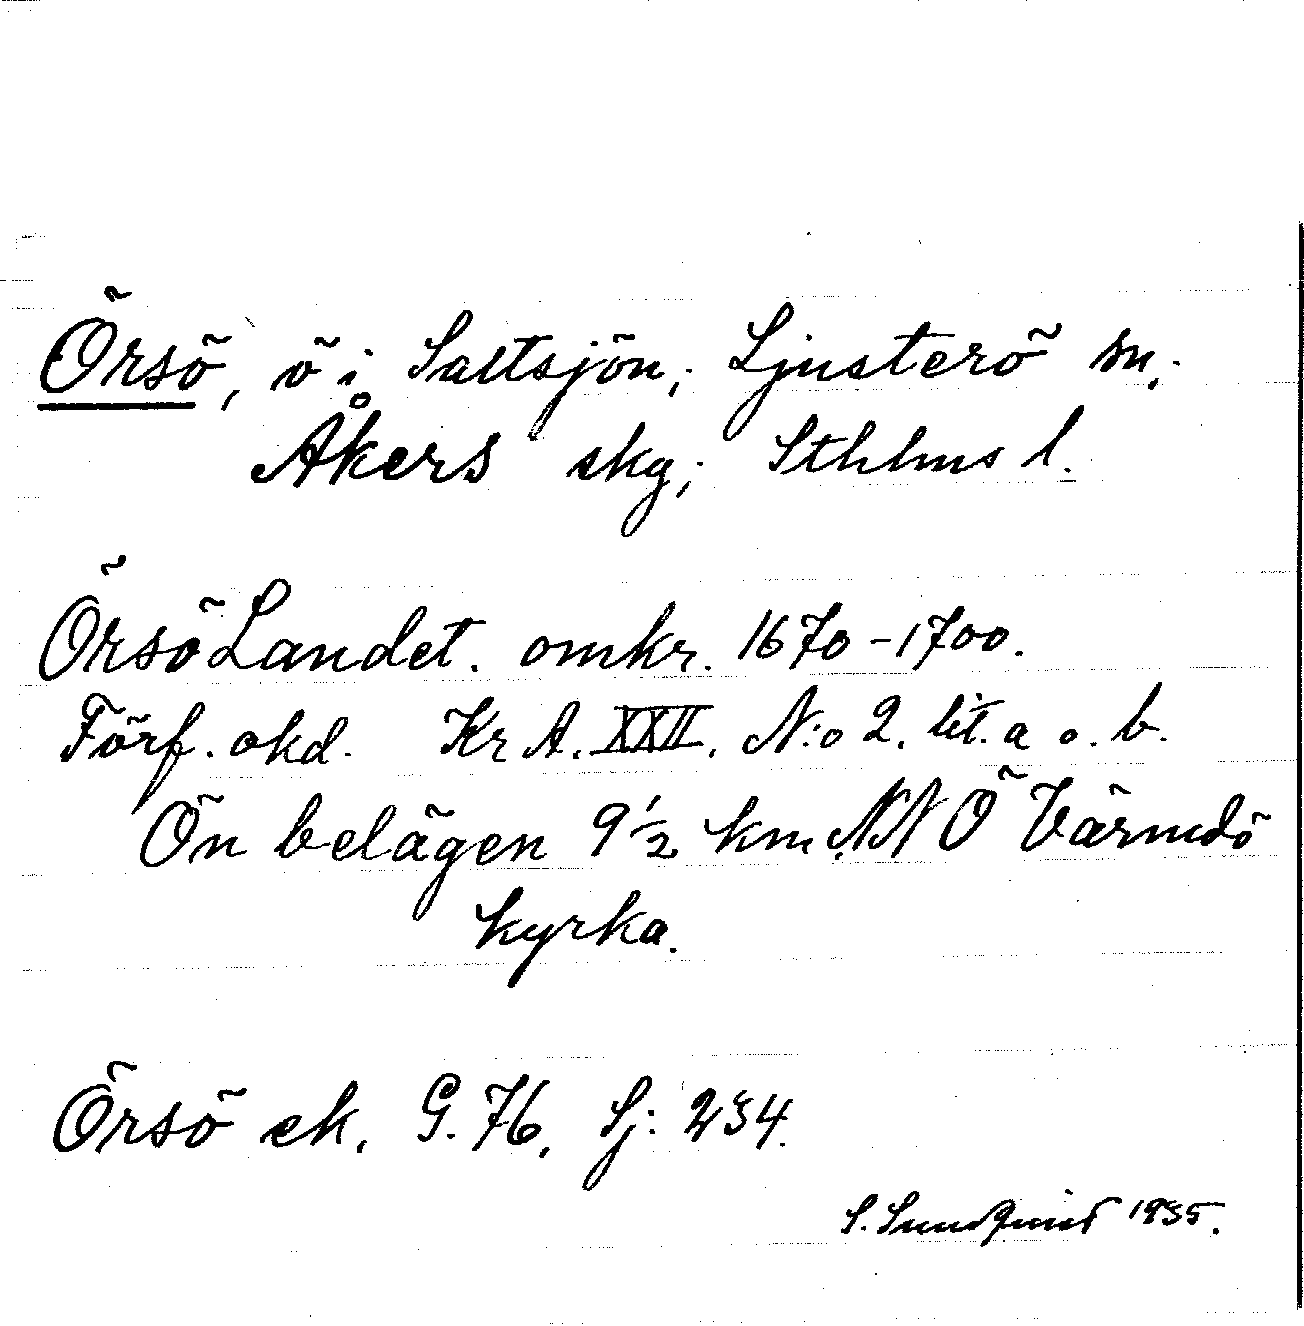 Örsö, ö i Saltsjön; Ljusterö sn;
Åkers skg; Sthlms l.
ÖrsöLandet. omkr. 1670-1700.
Förf. okd. Kr A. XXII. N:o 2. lit. a o. b.
Ön belägen 9 1/2 km NNÖ Värmdö
kyrka.
Örsö ek. G. 76. Sj: 234.
S. Sundquist 1935.